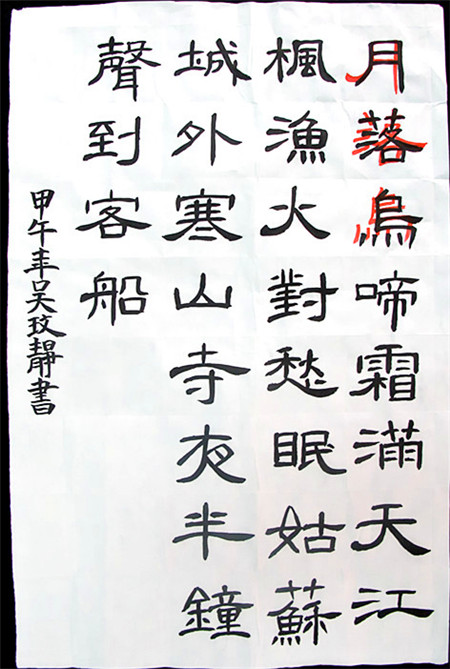 月落烏啼霜滿天江
楓漁火對愁眠姑蘇
城外寒山寺夜半鐘
聲到客船
甲午年吴玟靜書